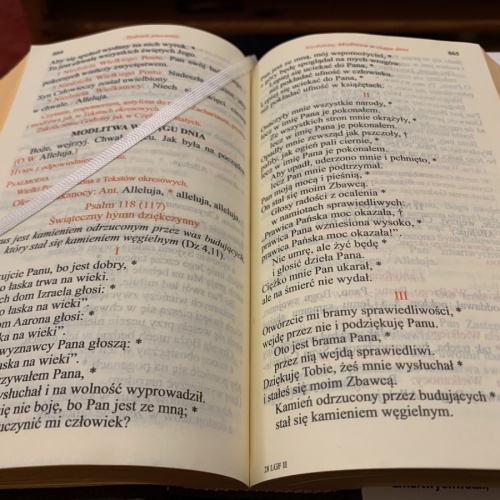 864
Aby się spełnił wydany na nich wyrok. *
To jest chwałą wszystkich świętych Jego.
pokonałem winnicy zwycięstwem.
Wielkiego Postu: Nadeszła
Syn Człowieczy został uwielbiony.
Wielkanocy: Niech
w chwale. Alleluja.
MODLITWA W CIĄGU DNIA
Boże, wejrzyj. Chwała Jak była na początku
Alleluja.
PSALMODIA Tekstów okresowych.
Ant. Alleluja, * alleluja, alleluja.
Psalm 118 (117)
Świąteczny hymn dziękczynny
jest kamieniem odrzuconym przez was budujących,
który stał się kamieniem węgielnym (Dz 4,11).
I
Panu, bo jest dobry, *
łaska trwa na wieki.
dom Izraela głosi: *
na wieki”.
Aarona głosi: *
na wieki”.
wyznawcy Pana głoszą: *
na wieki”.
Pana, *
i na wolność wyprowadził.
się nie boję, bo Pan jest ze mną; *
uczynić mi człowiek?
865
Pan jest ze mną, mój wspomożyciel, *
spoglądał na mych wrogów.
się uciekać do Pana, *
pokładać ufność w człowieku.
się uciekać do Pana, *
pokładać ufność w książętach.
II
Otoczyły mnie wszystkie narody, *
lecz w imię Pana je pokonałem.
Ze wszystkich stron mnie okrążyły, *
lecz w imię Pana je pokonałem.
Opadły mnie zewsząd jak pszczoły, †
paliły jak ogień pali ciernie, *
lecz w imię Pana je pokonałem.
Aby upadł, uderzono mnie i pchnięto, *
lecz Pan mnie podtrzymał.
Pan moją mocą i pieśnią, *
On stał się moim Zbawcą.
Głosy radości z ocalenia *
w namiotach sprawiedliwych:
„Prawica Pańska moc okazała, †
prawica Pana wzniesiona wysoko, *
prawica Pańska moc okazała!”.
Nie umrę, ale żyć będę *
i głosić dzieła Pana.
Ciężko mnie Pan ukarał, *
ale na śmierć nie wydał.
III
Otwórzcie mi bramy sprawiedliwości, *
wejdę przez nie i podziękuję Panu.
Oto jest brama Pana, *
przez nią wejdą sprawiedliwi.
Dziękuję Tobie, żeś mnie wysłuchał *
i stałeś się moim Zbawcą.
Kamień odrzucony przez budujących *
stał się kamieniem węgielnym.
28 LGF II